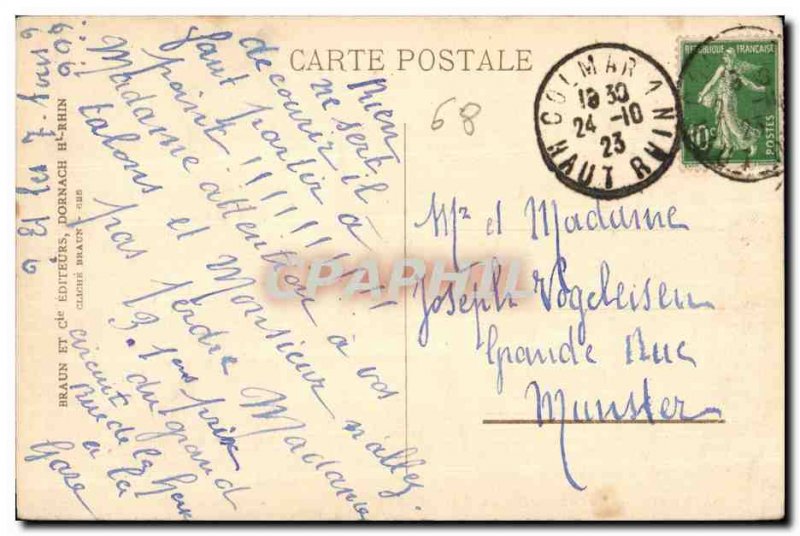 CARTE POSTALE
COLMAR A
18 30
24 -10
23
HAUT RHIN
REPUBLIQUE FRANÇAISE
10c
POSTES
68
Rien
ne sert il
de courir il
faut partir à
point !!!!!!!!!!
Madame attention à vos
talons et Monsieur n'allez
pas perdre Madame
3. 1ers prix
du grand
circuit
Rue de
à la
Gare
Et les 7.
Mr et Madame
Joseph Vogeleisen
Grande Rue
Munster
BRAUN ET Cie EDITEURS, DORNACH Ht-RHIN
CLICHÉ BRAUN
CPAPHIL